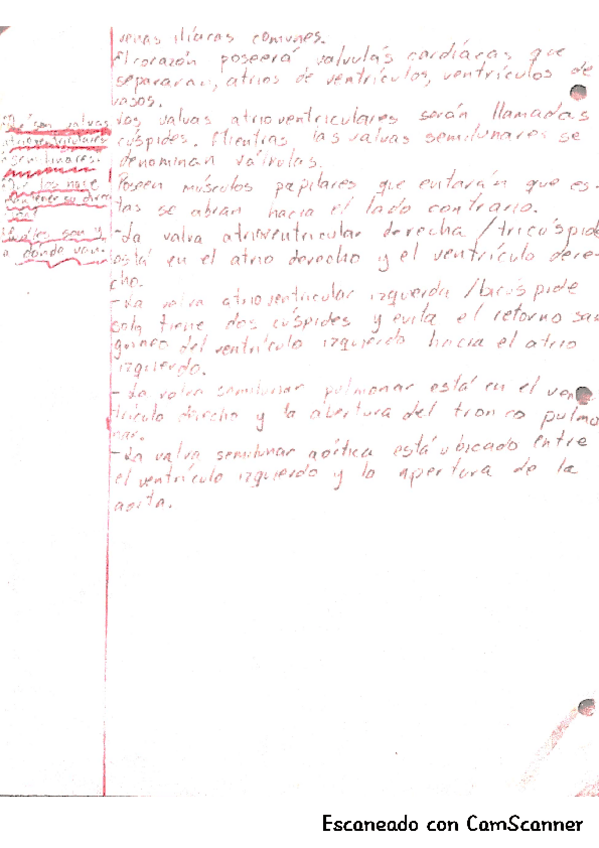 venas ilíacas comunes.
El corazón poseerá valvulas cardíacas que
separaran, atrios de ventrículos, ventrículos de
vasos.
Las valvas atrioventriculares serán llamadas
cúspides. Mientras las valvas semilunares se
denominan válvulas.
Poseen músculos papilares que evitarán que es-
tas se abran hacia el lado contrario.
-La valva atrioventricular derecha /tricúspide
está en el atrio derecho y el ventrículo dere-
cho.
-La valva atrioventricular izquierda /bicúspide
solo tiene dos cúspides y evita el retorno san
guineo del ventrículo izquierdo hacia el atrio
izquierdo.
-La valva semilunar pulmonar está en el ven
trículo derecho y la abertura del tronco pulmo
nar.
-La valva semilunar aórtica está ubicado entre
el ventrículo izquierdo y la apertura de la
aorta.
son valvas
atrioventriculares
semilunares.
los hace
Cuáles son y
a donde van.
Escaneado con CamScanner